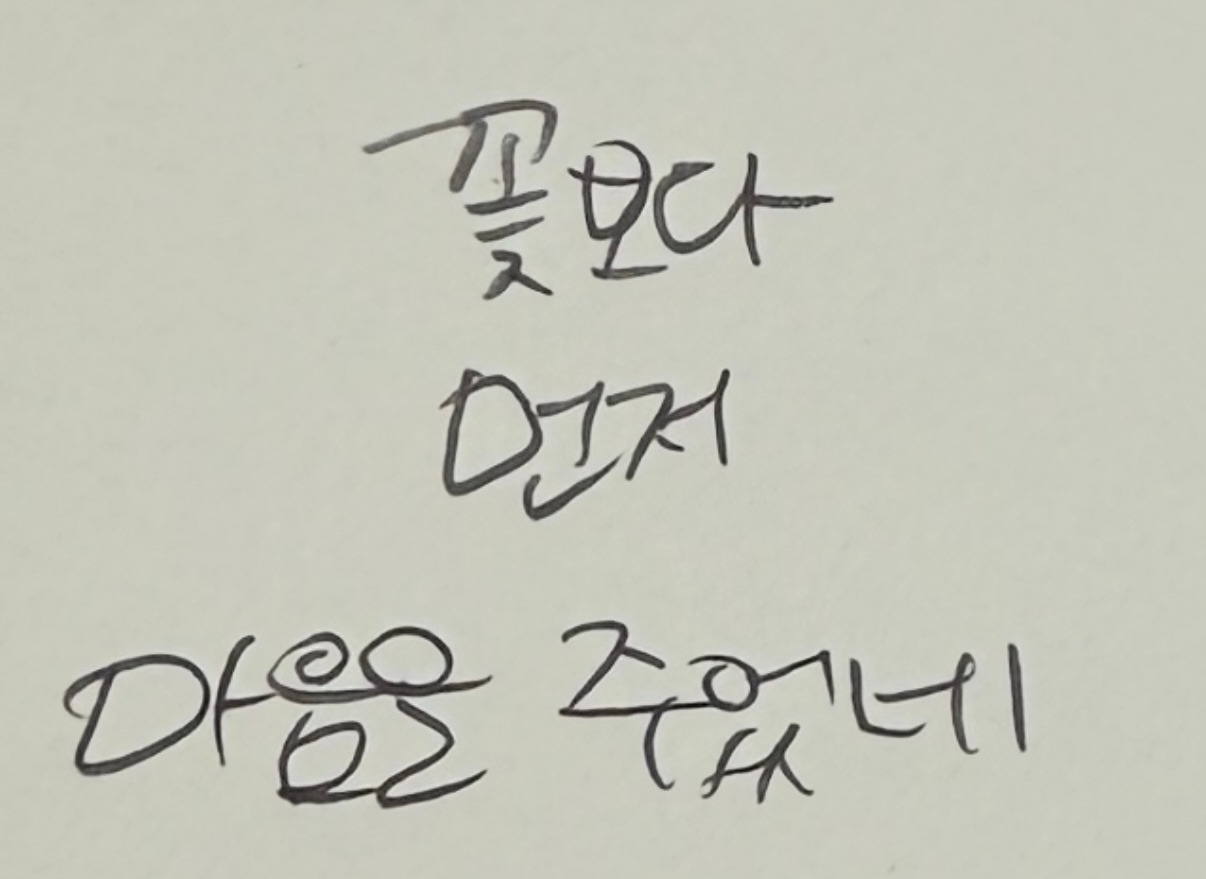 꽃보다
먼저
마음을 주었네